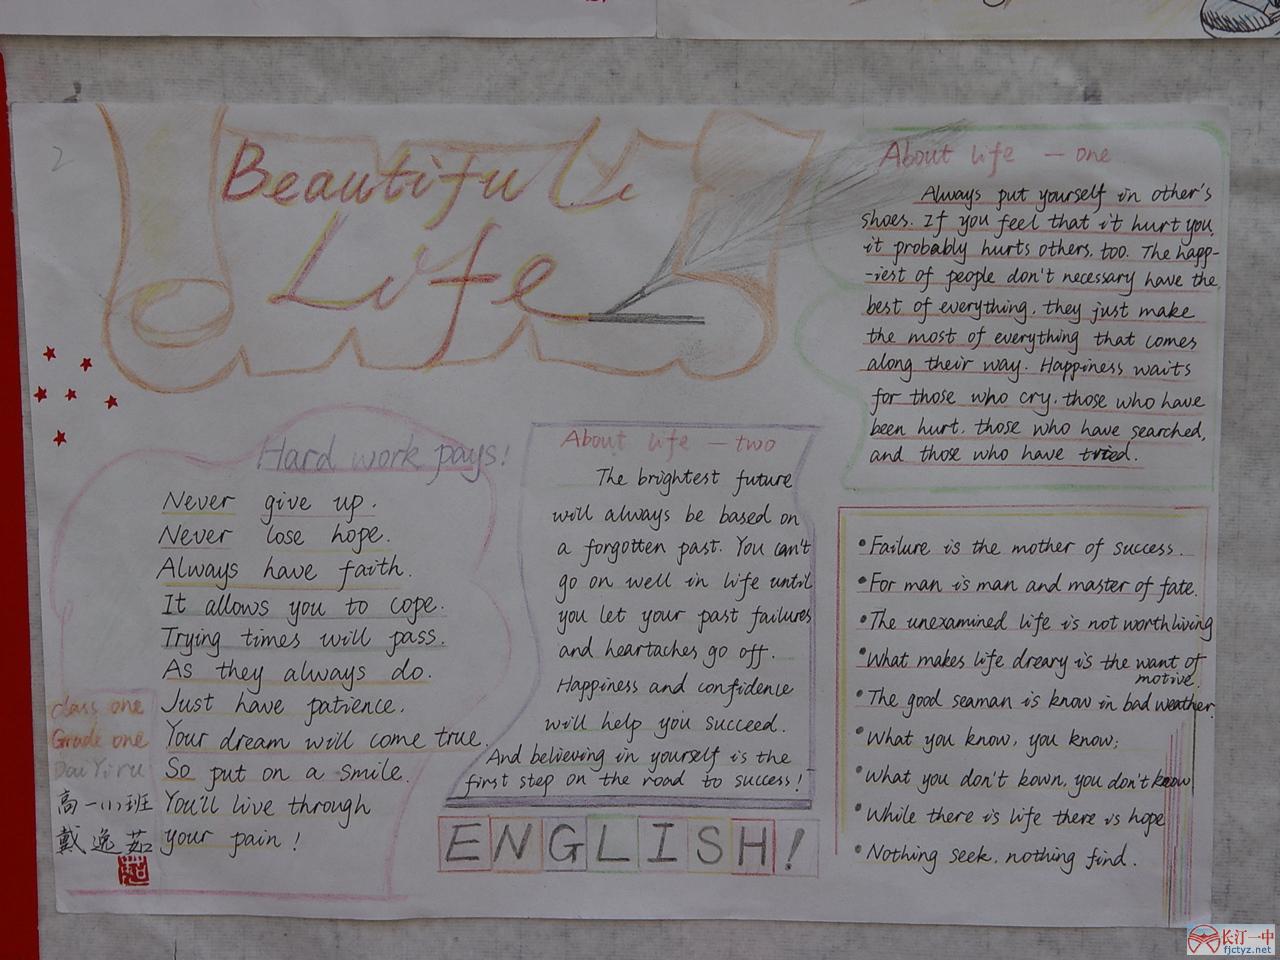 2
Beautiful
Life
About life — one
Always put yourself in other's
shoes. If you feel that it hurt you,
it probably hurts others, too. The happ-
-iest of people don't necessary have the
best of everything, they just make
the most of everything that comes
along their way. Happiness waits
for those who cry, those who have
been hurt, those who have searched,
and those who have tried.
Hard work pays!
Never give up.
Never lose hope.
Always have faith.
It allows you to cope.
Trying times will pass.
As they always do.
Just have patience.
Your dream will come true.
So put on a smile.
You'll live through
your pain!
class one
Grade one
Dai Yiru
高一(1)班
戴逸茹
About life — two
The brightest future
will always be based on
a forgotten past. You can't
go on well in life until
you let your past failures
and heartaches go off.
Happiness and confidence
will help you succeed.
And believing in yourself is the
first step on the road to success!
ENGLISH!
•Failure is the mother of success.
•For man is man and master of fate.
•The unexamined life is not worth living
•What makes life dreary is the want of
motive.
•The good seaman is know in bad weather.
•What you know, you know;
•What you don't kown, you don't know
•While there is life there is hope
•Nothing seek, nothing find.
长汀一中
fjctyz.net